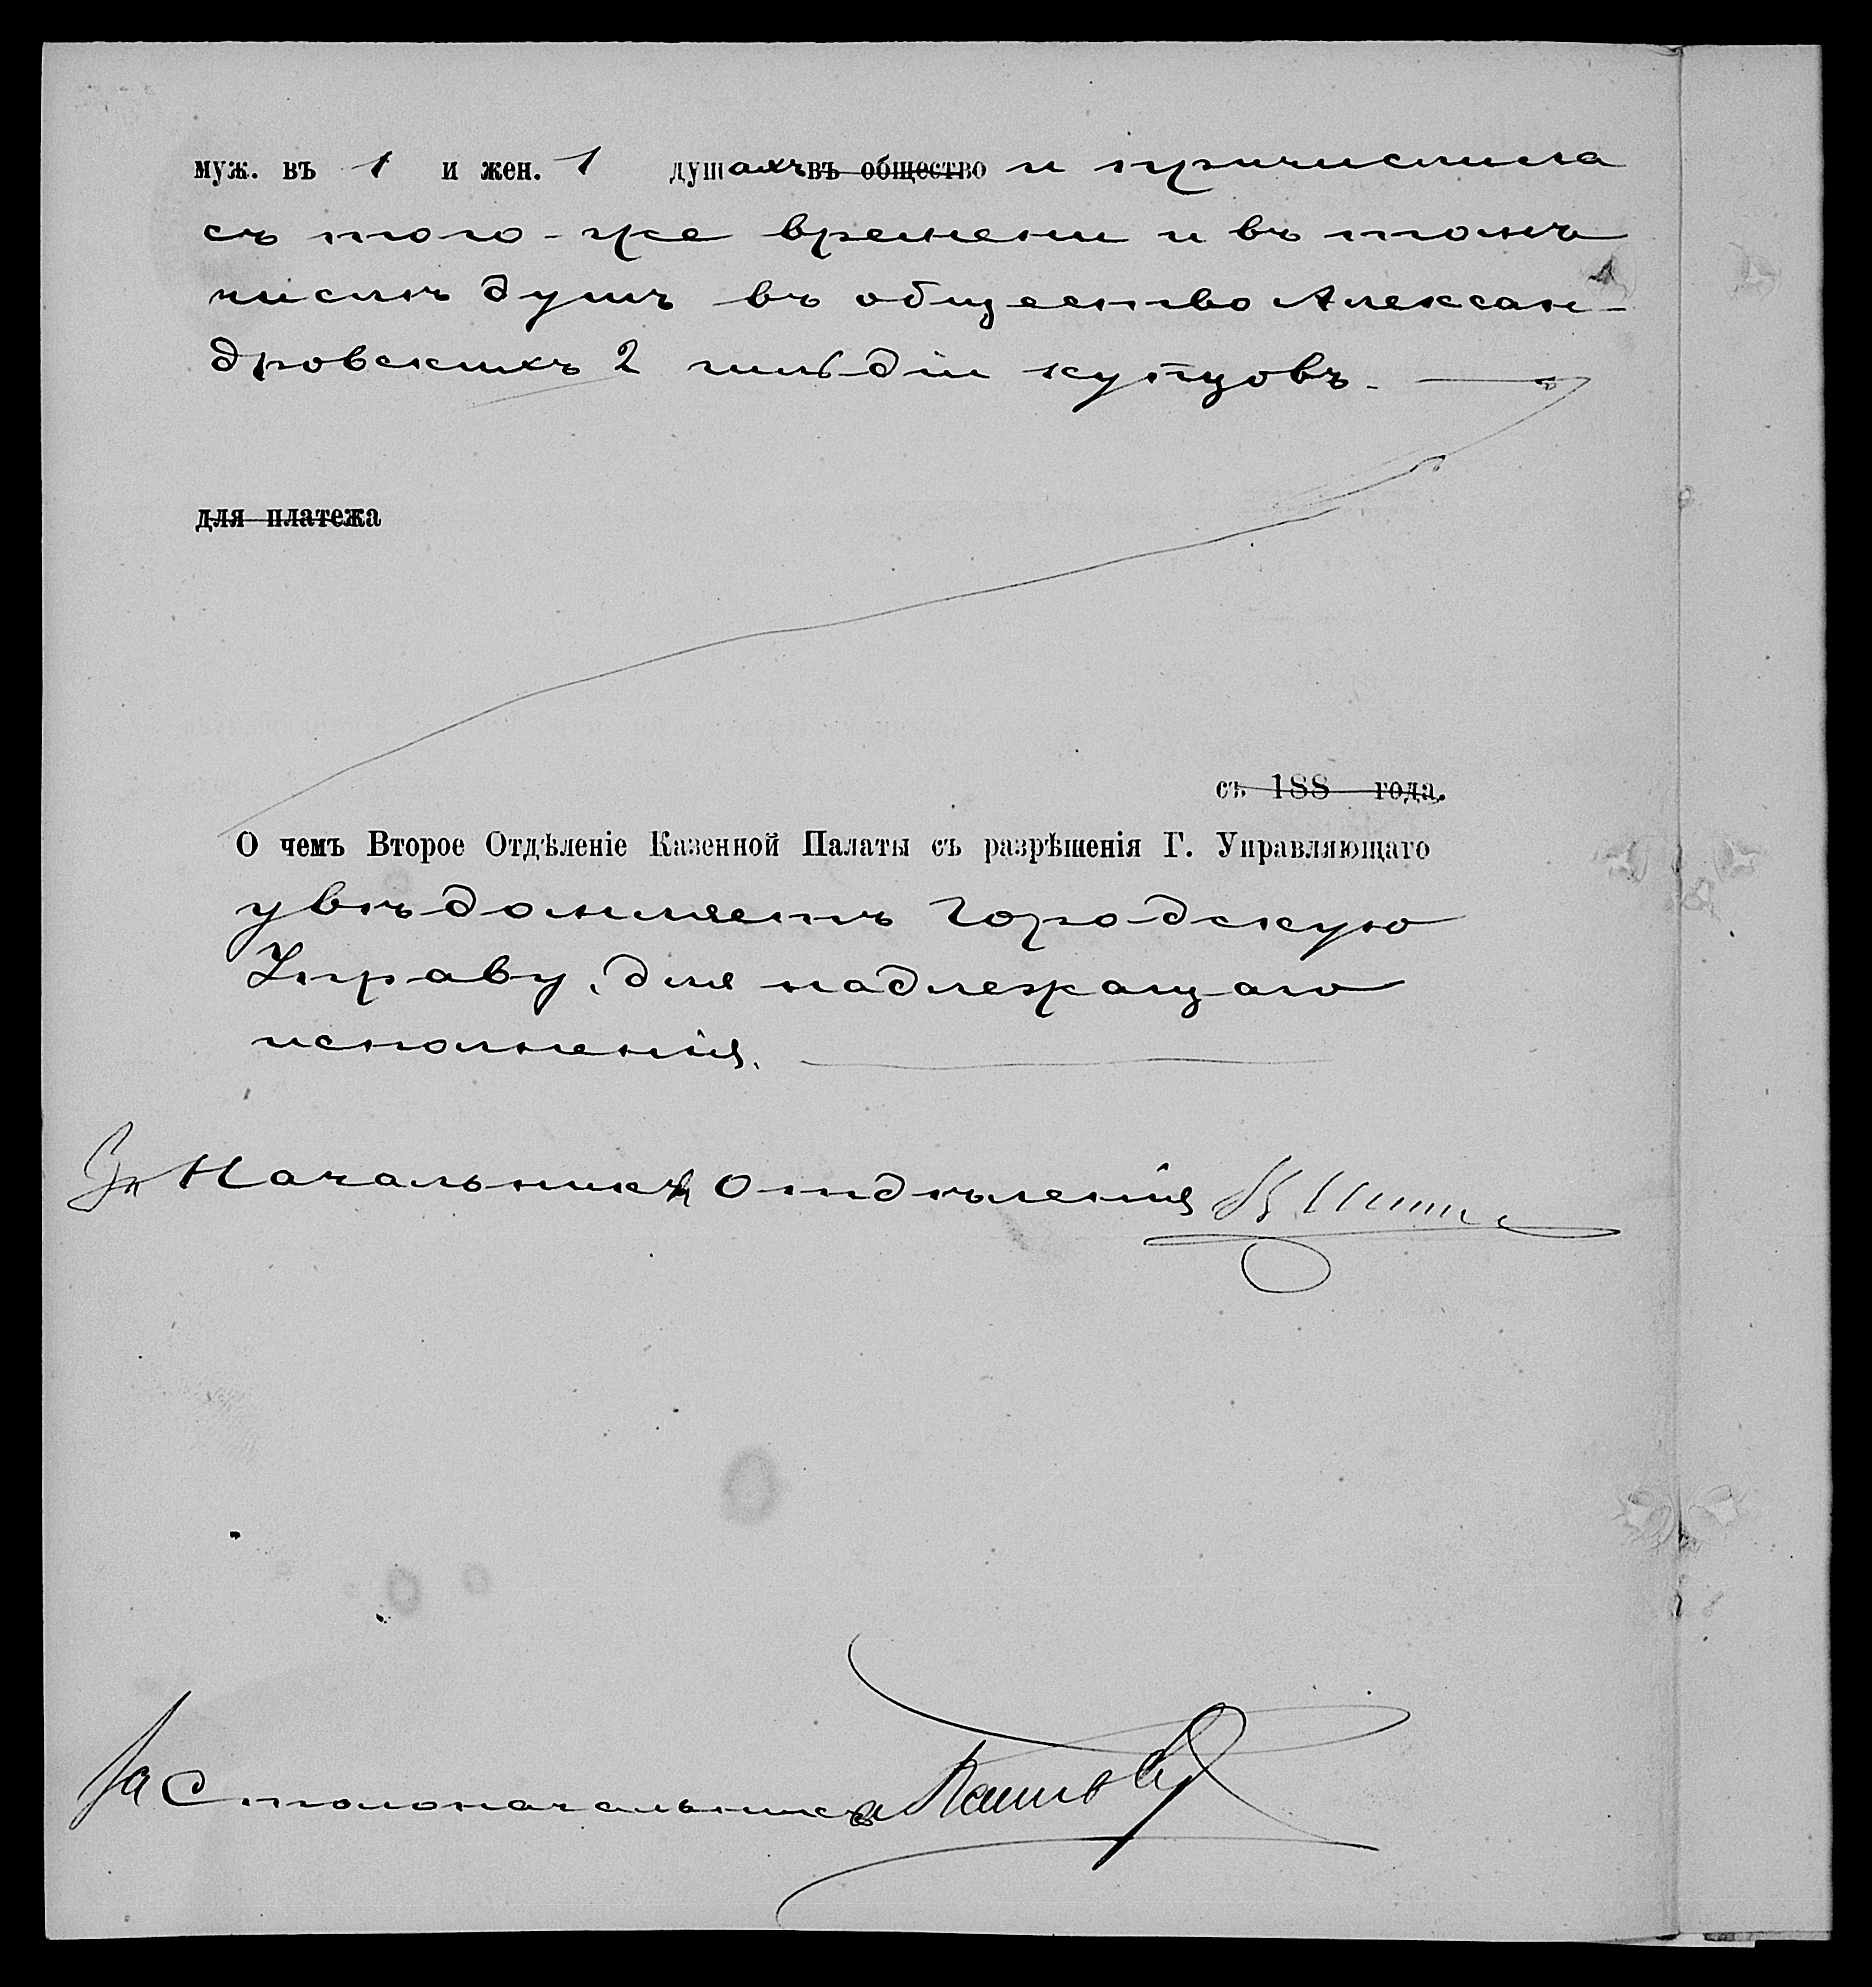 муж. въ 1 и жен. 1 душахъ въ общество и причислила
съ того-же времени и въ томъ
числѣ душъ въ общество Алексан-
дровскихъ 2 гильдіи купцовъ.
для платежа
съ 188 года.
О чемъ Второе Отдѣленіе Казенной Палаты съ разрѣшенія Г. Управляющаго
увѣдомляетъ Городскую
Управу, для надлежащаго
исполненія.
За Начальника Отдѣленія
За Столоначальника